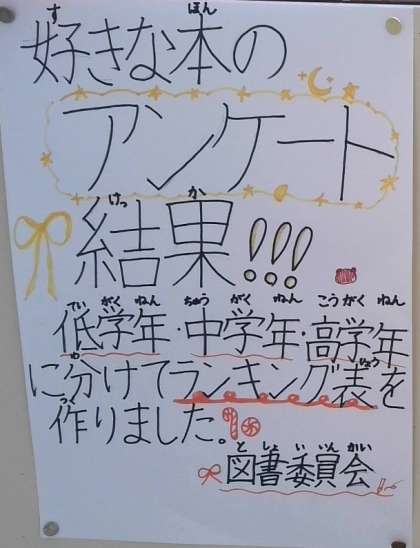 好きな本の
アンケート
結果!!!
低学年・中学年・高学年
に分けてランキング表を
作りました。
図書委員会